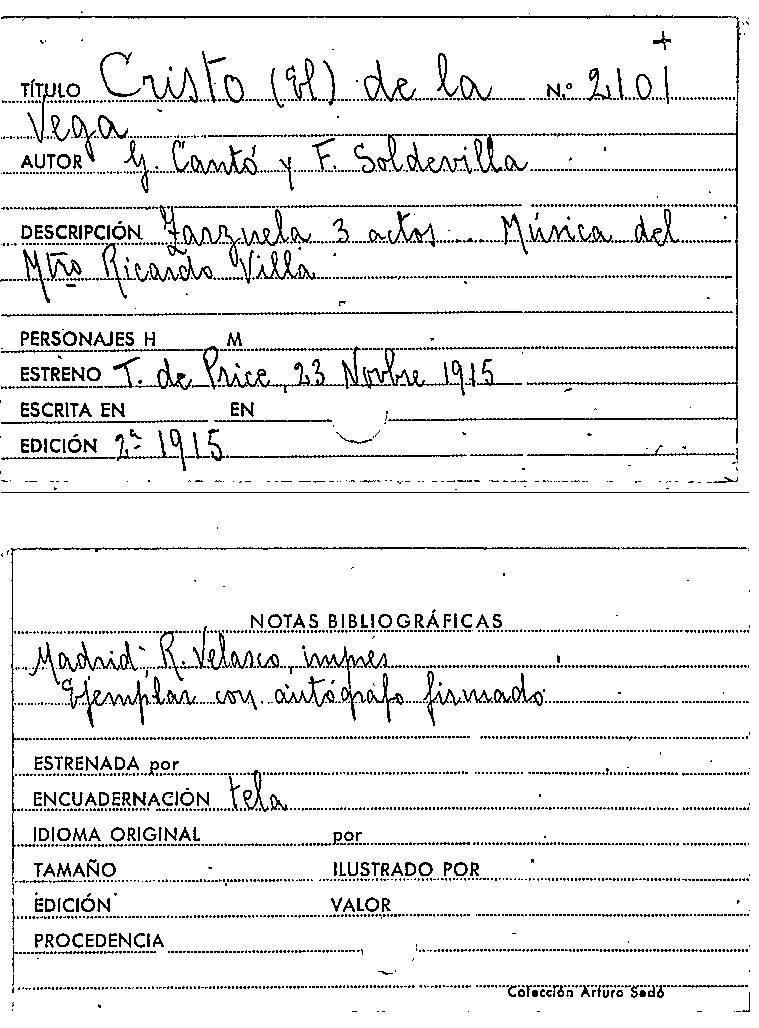 +
TÍTULO Cristo (El) de la N.º 2101
Vega
AUTOR G. Cantó y F. Soldevilla
DESCRIPCIÓN Zarzuela 3 actos... Música del
Mtro Ricardo Villa
PERSONAJES H M
ESTRENO T. de Price, 23 Novbre 1915
ESCRITA EN EN
EDICIÓN 2ª 1915
NOTAS BIBLIOGRÁFICAS
Madrid, R. Velasco, imprés
Ejemplar con autógrafo firmado
ESTRENADA por
ENCUADERNACIÓN tela
IDIOMA ORIGINAL por
TAMAÑO ILUSTRADO POR
EDICIÓN VALOR
PROCEDENCIA
Colección Arturo Sedó